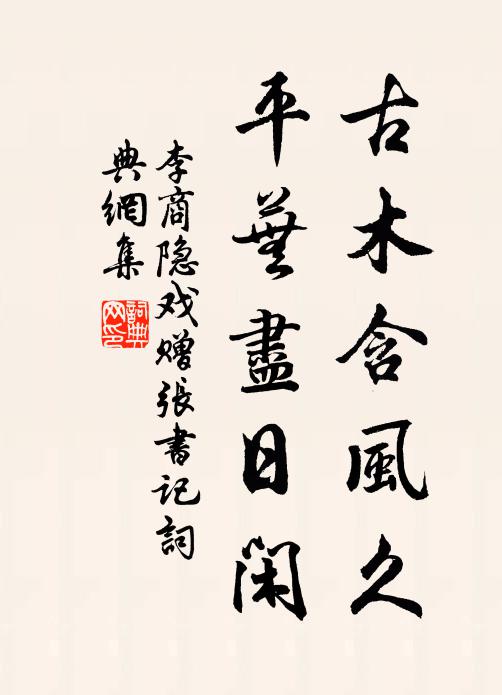 古木含風久
平蕪盡日闲
李商隐戏赠張書记詞
典網集
詞典
网印